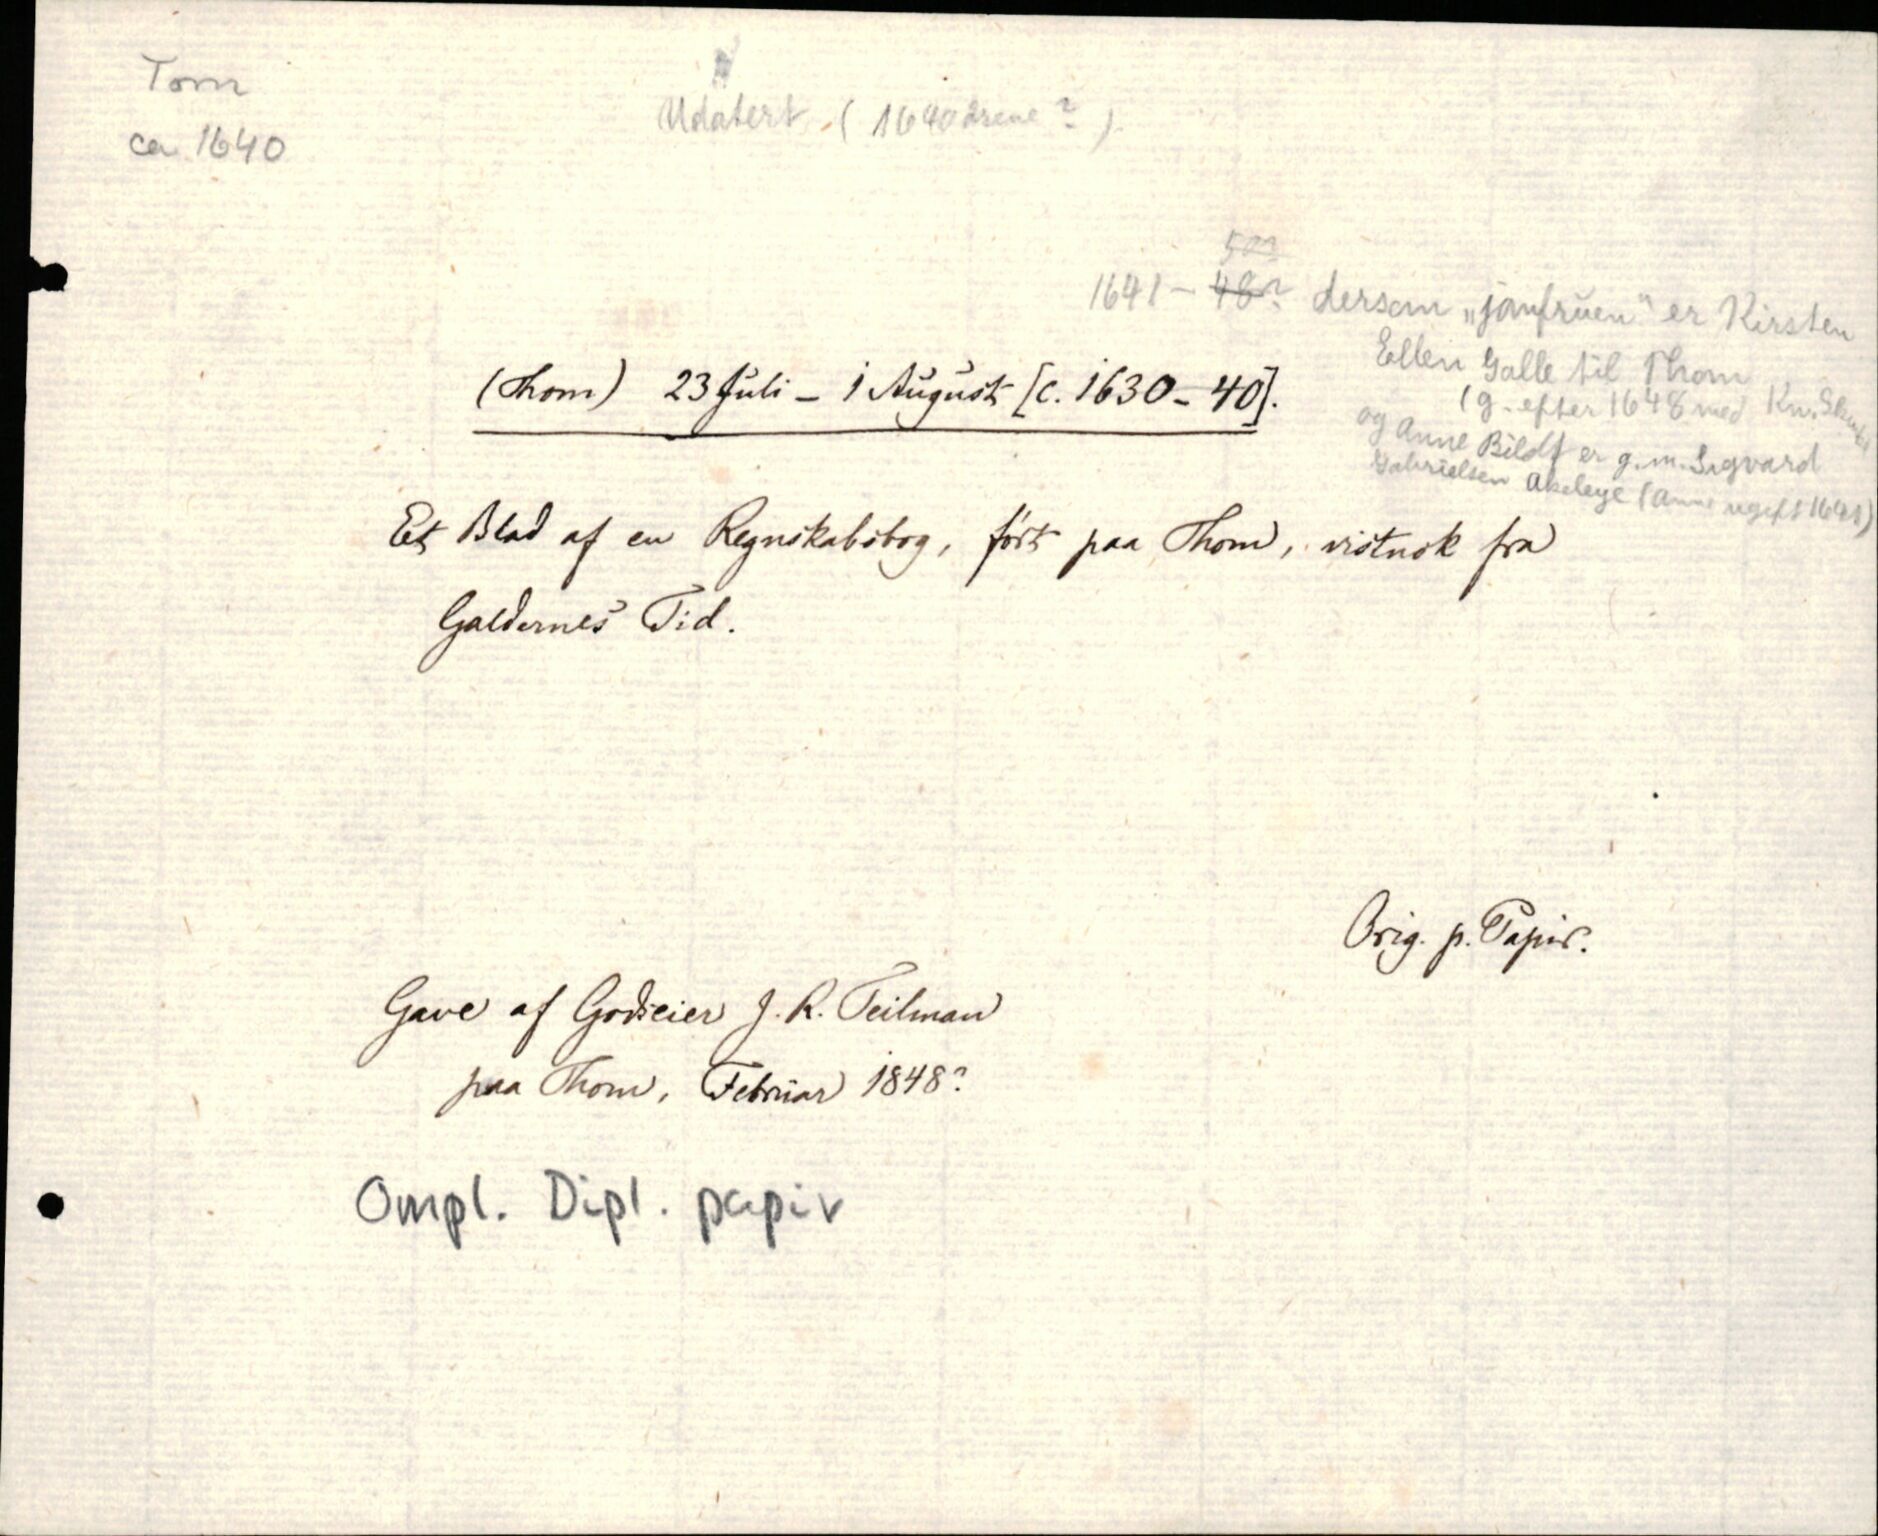 Tom
ca 1640
Udatert (1640 årene?)
50?
1641 – 48? dersom „jomfruen" er Kirsten
Ellen Galle til Thom
(g. efter 1648 med Kn.
og Anne Bildt er g.m. Sigvard
Gabrielsen Akeleye (Anne ugift 1641)
(Thom) 23 Juli – 1 August [c. 1630–40].
Et Blad af en Regnskabsbog, ført paa Thom, vistnok fra
Galdernes Tid.
Orig. p. Papir.
Gave af Godseier J. R. Teilman
paa Thom, Februar 1848?
Ompl. Dipl. papir